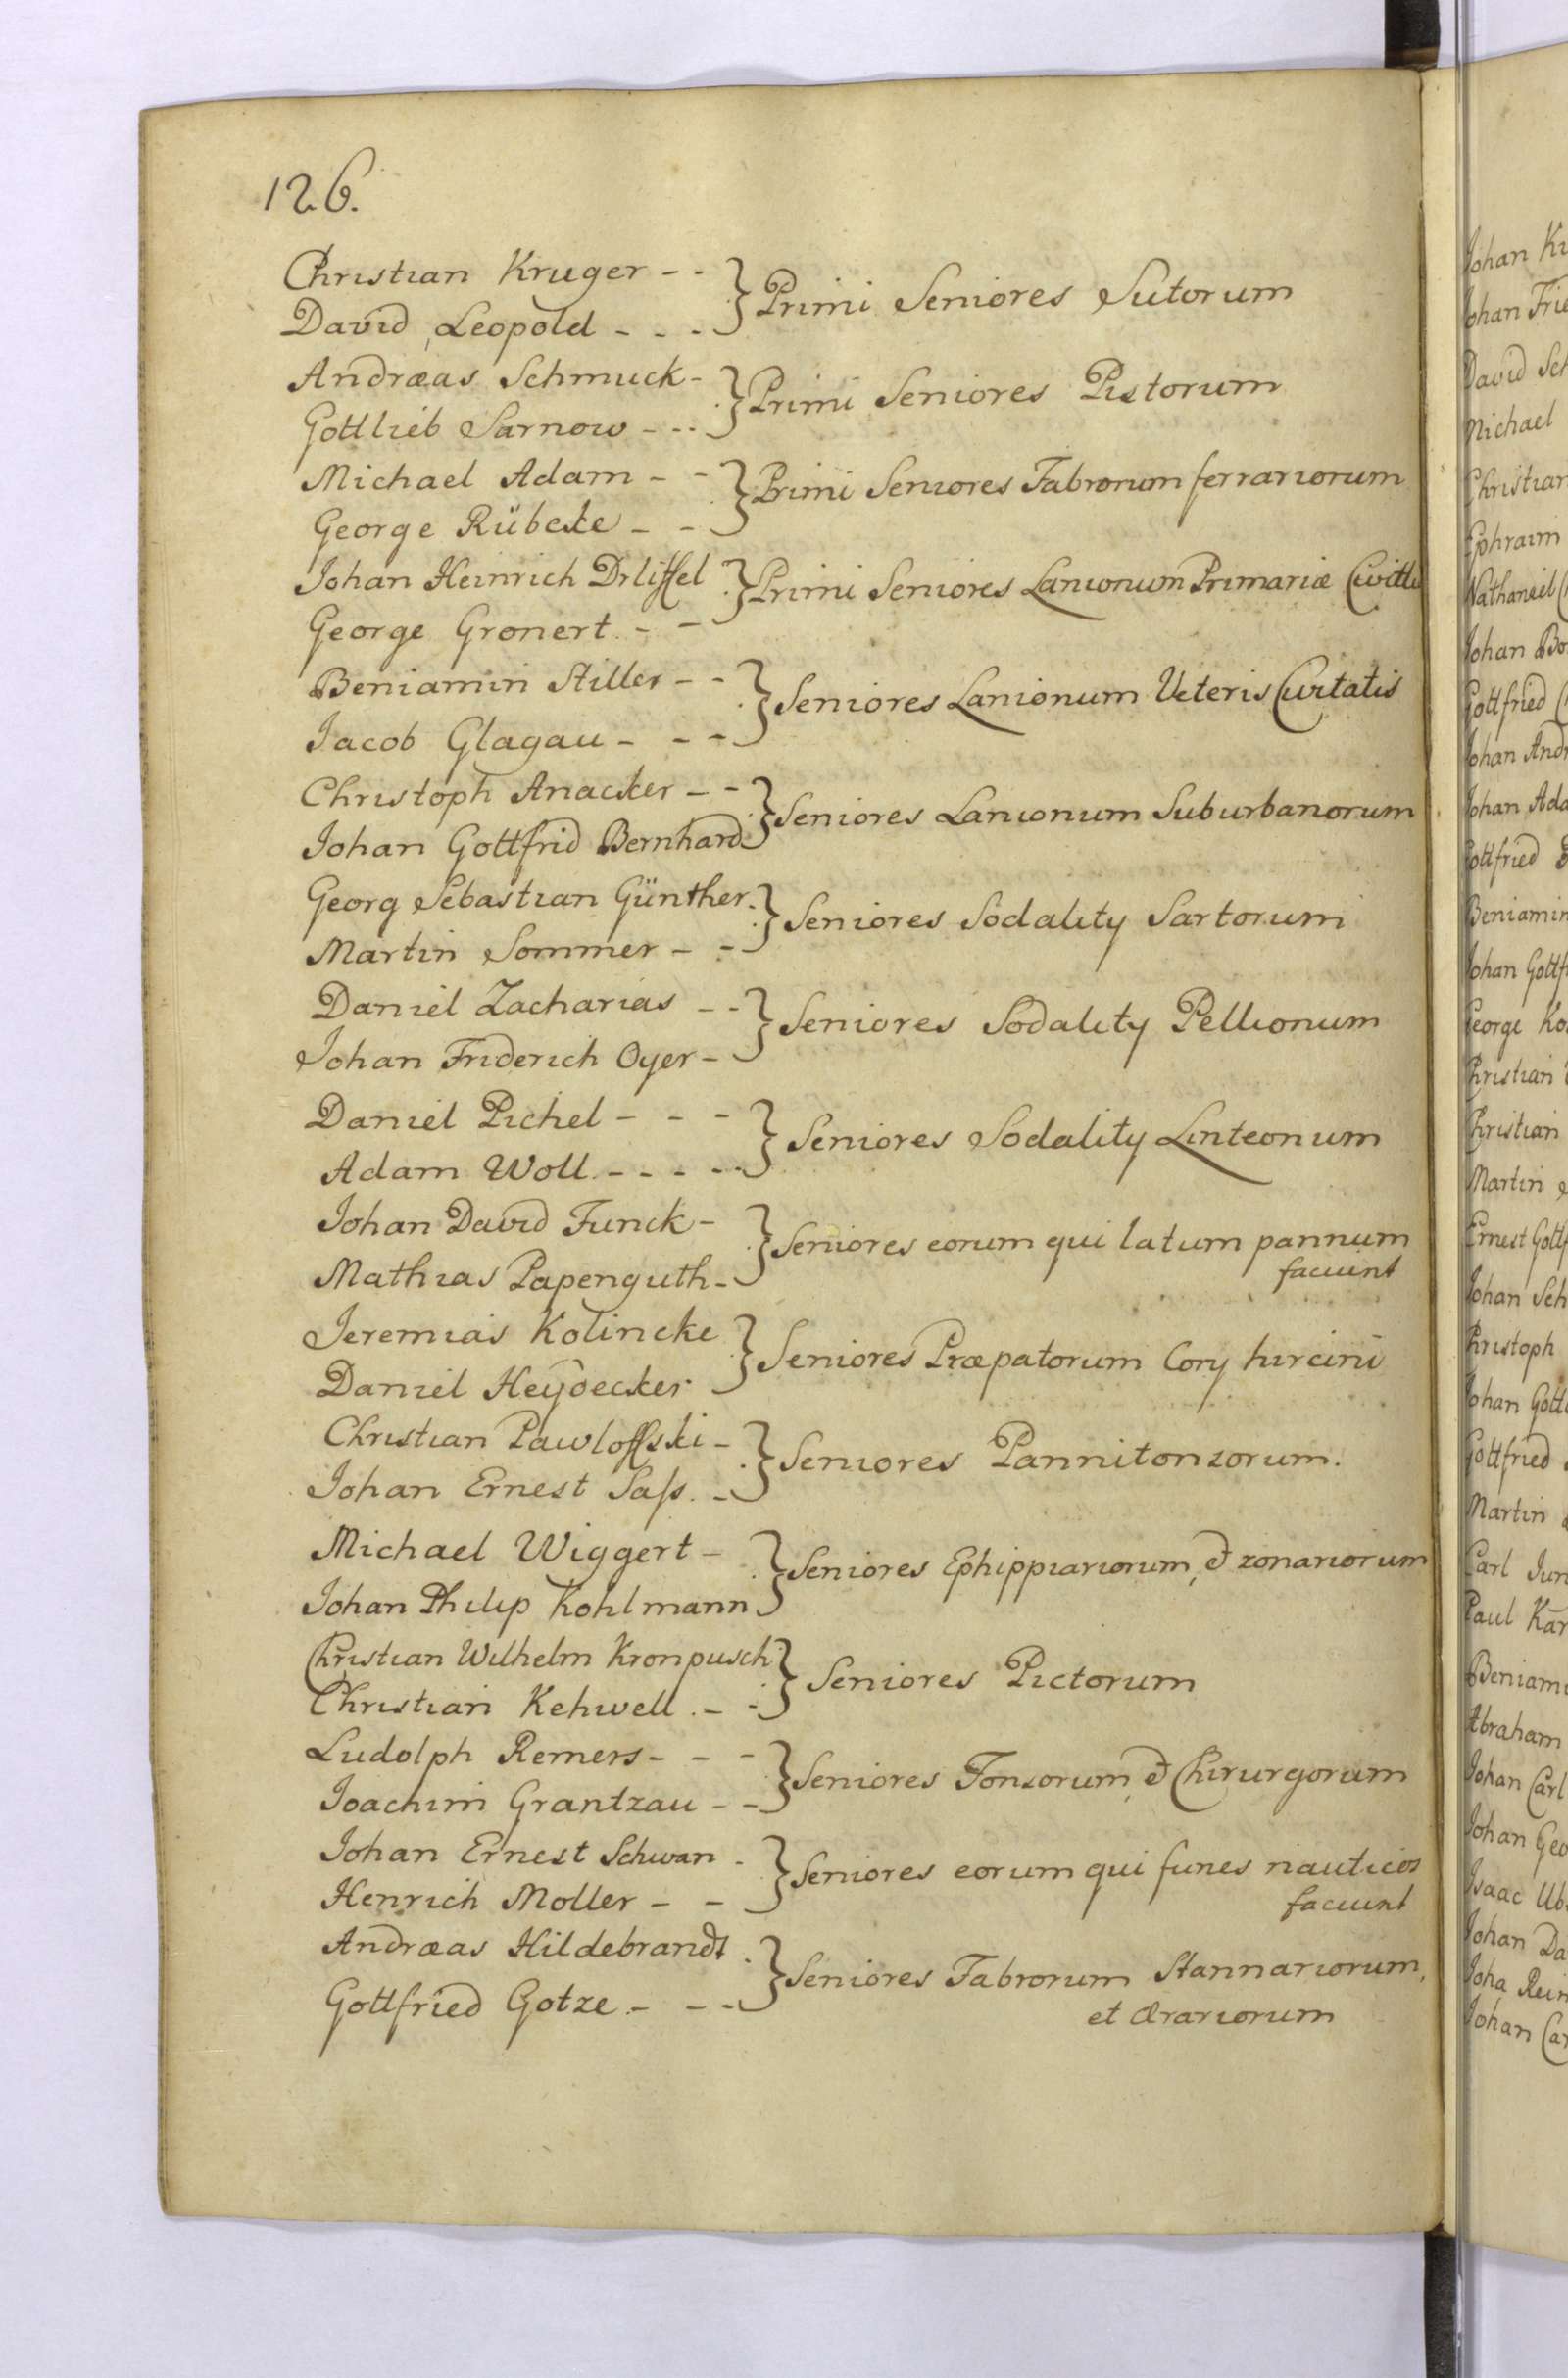 126.
Christian Kruger - - } Primi Seniores Sutorum
David Leopold - - -
Andræas Schmuck - } Primi Seniores Pistorum
Gottlieb Sarnow - - -
Michael Adam - - } Primi Seniores Fabrorum ferrariorum
George Rübcke - -
Johan Heinrich Drliffel } Primi Seniores Lanionum Primariæ
George Gronert. - -
Beniamin Stiller - - } Seniores Lanionum Veteris Civitatis
Jacob Glagau - - -
Christoph Anacker - - } Seniores Lanionum Suburbanorum
Johan Gottfrid Bernhard
Georg Sebastian Günther. } Seniores Sodality Sartorum
Martin Sommer - -
Daniel Zacharias - - } Seniores Sodality Pellionum
Johan Friderich Oyer -
Daniel Pichel - - - } Seniores Sodality Linteonum
Adam Woll. - - - - -
Johan David Funck - } Seniores eorum qui latum pannum
faciunt
Mathias Papenguth -
Jeremias Kolincke } Seniores Præpatorum Cory hircini
Daniel Heydecker
Christian Pawloffski - } Seniores Pannitonsorum.
Johan Ernest Saſs. -
Michael Wiggert - } Seniores Ephippiariorum, & zonariorum
Johan Philip Kohlmann
Christian Wilhelm Kronpusch } Seniores Pictorum
Christian Kehwell. - -
Ludolph Remers - - - } Seniores Tonsorum, & Chirurgorum
Joachim Grantzau - -
Johan Ernest Schwan - } Seniores eorum qui funes nauticos
faciunt
Henrich Moller - -
Andræas Hildebrandt } Seniores Fabrorum Stannariorum,
et Ærariorum
Gottfried Gotze. - - -
Johan
Johan
David
Michael
Christian
Ephraim
Nathaneel
Johan
Gottfried
Johan
Johan
Gottfried
Beniamin
Johan
George
Christian
Christian
Martin
Ernest
Johan
Christoph
Johan
Gottfried
Martin
Carl
Paul
Abraham
Johan Carl
Johan
Isaac
Johan
Joha
Johan